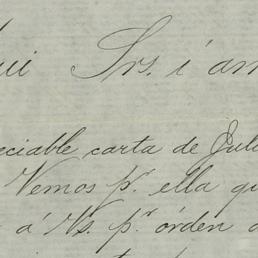 Srs. i am
eciable carta de Juli
Vemos pr. ella qu
á Vs. pr. órden d